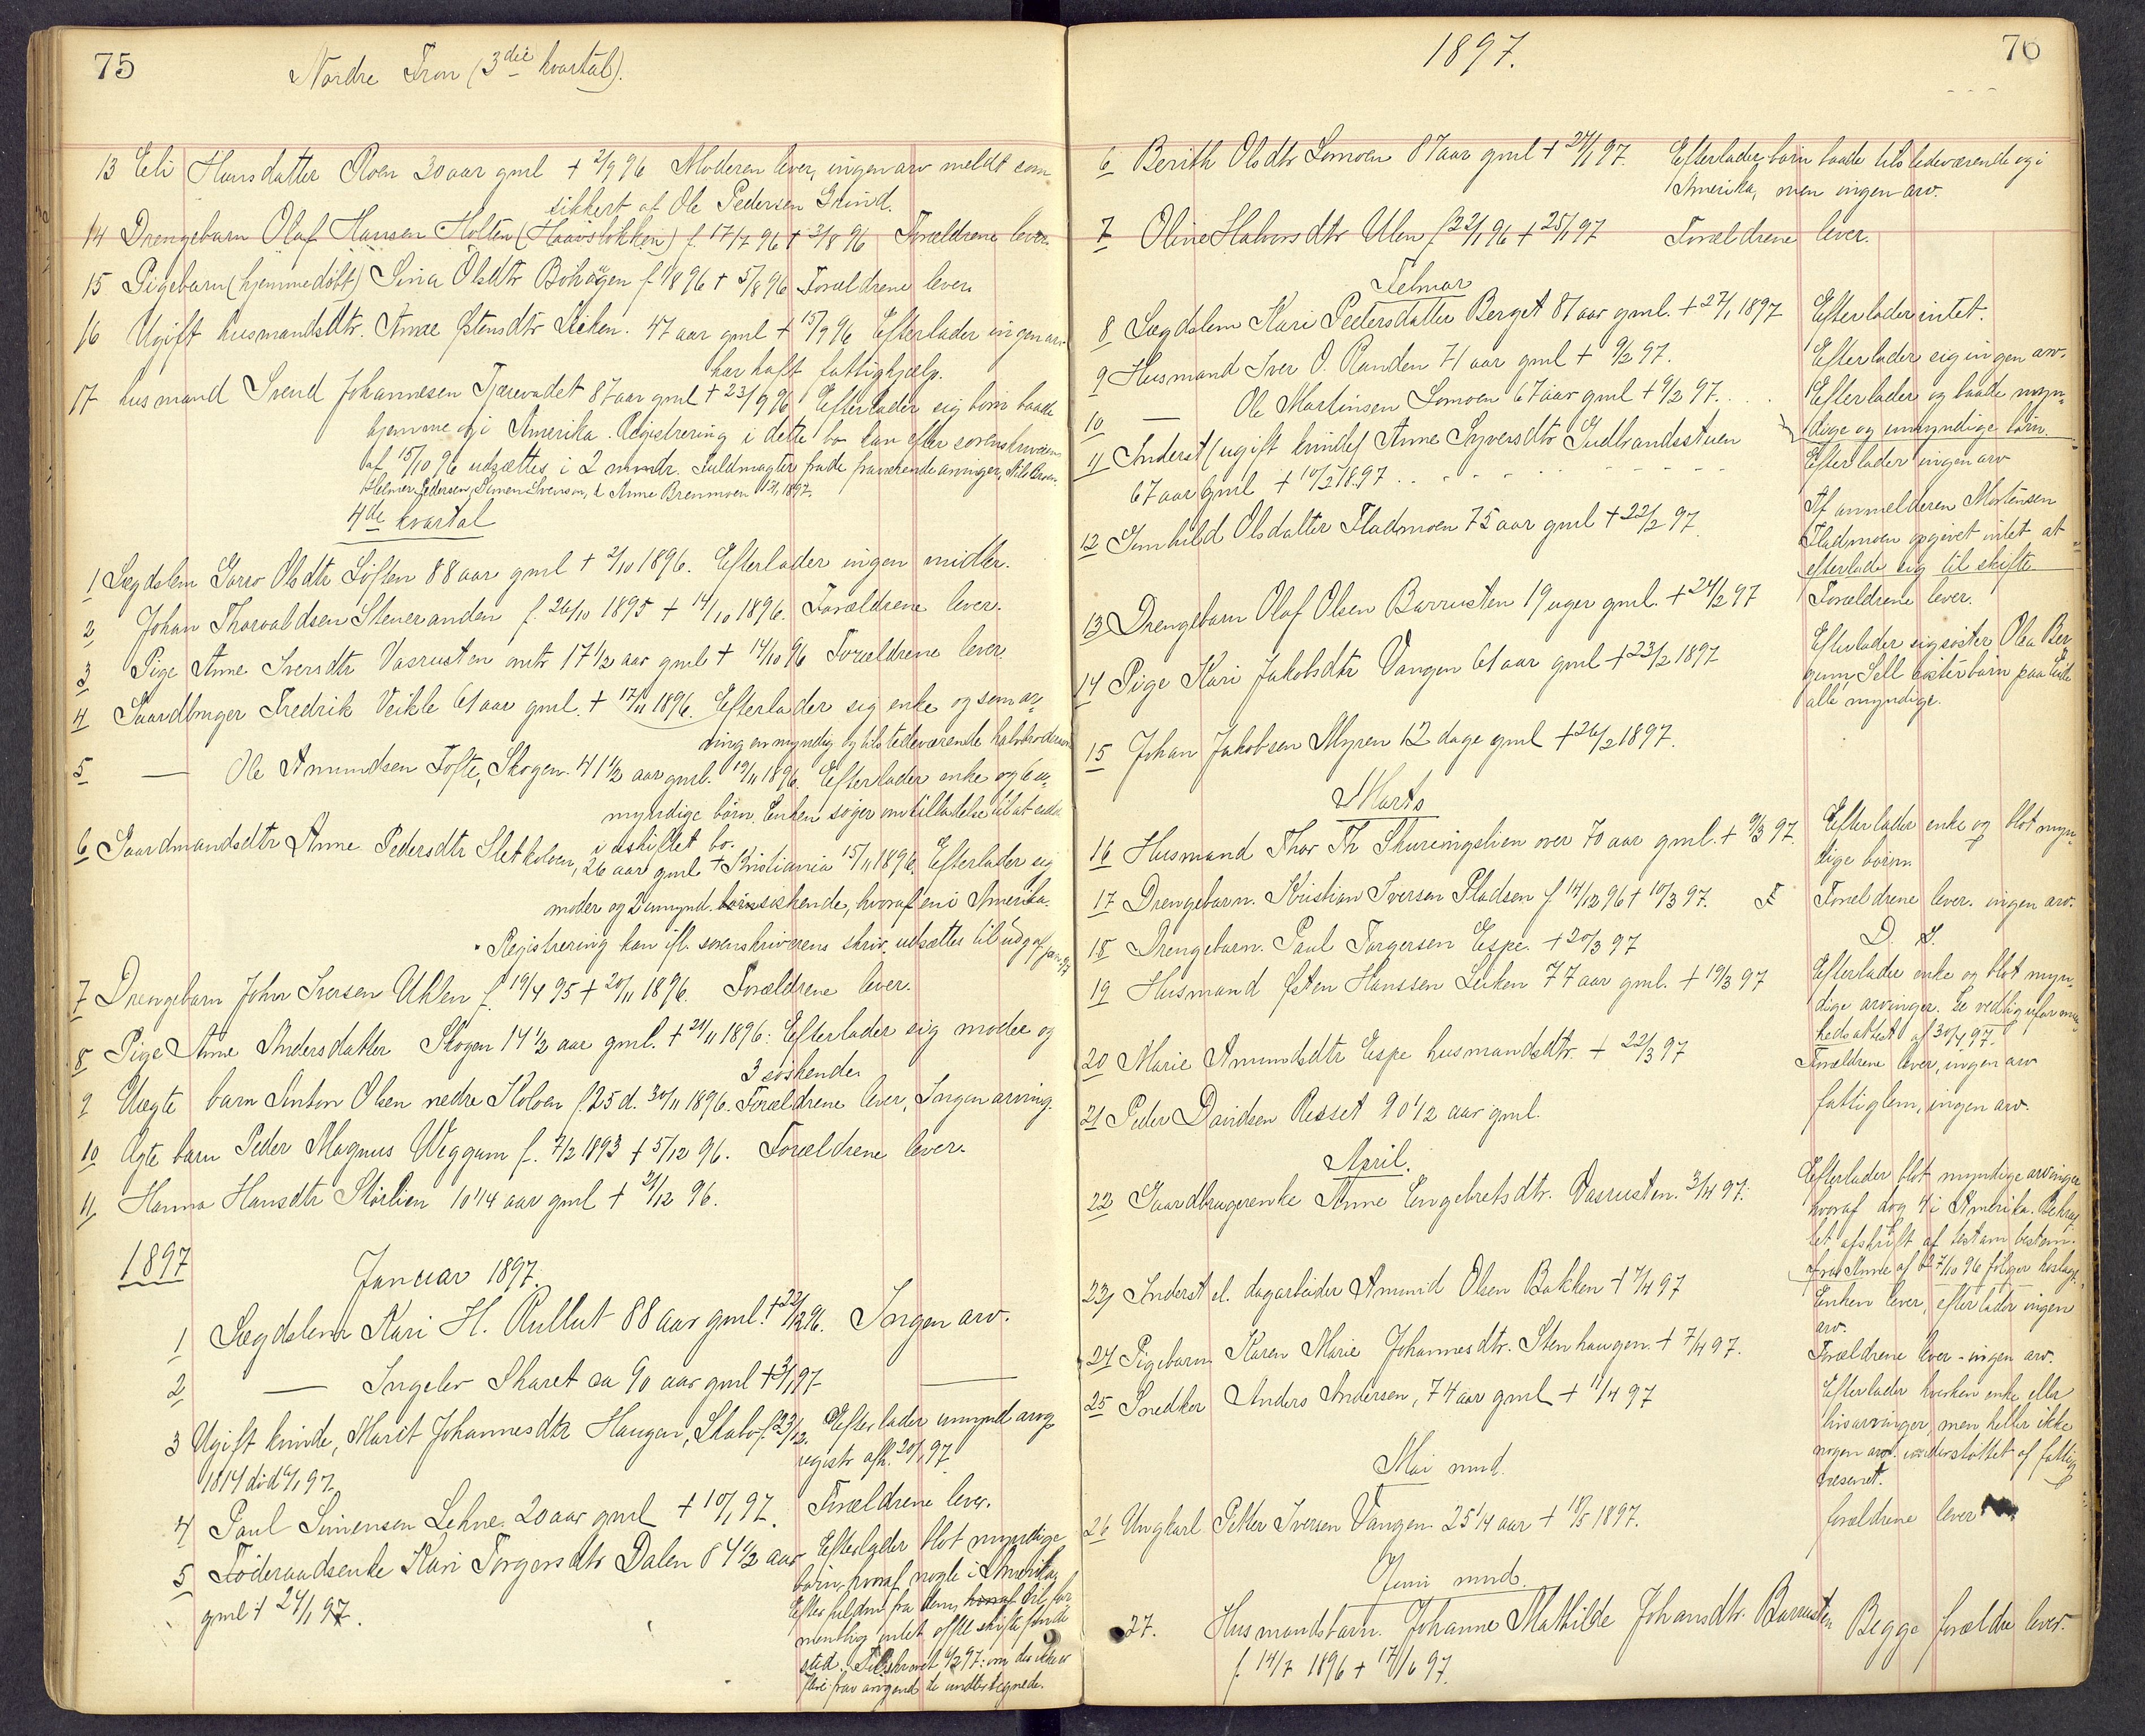 75
Nordre Fron (3die kvartal).
13 Eli Hansdatter Roen 20 aar gml + 2/9 96 Moderen lever, ingen arv meldt som
sikkert af Ole Pedersen Grind.
14 Drengebarn Olaf Hansen Holten (Haavslokken) f. 17/7 96 + 3/8 96 Forældrene lever.
15 Pigebarn (hjemmedöbt) Sina Olsdtr Böhaugen f 1/8 96 + 5/8 96 Forældrene lever.
16 Ugift husmandsdtr. Anne Østensdtr Leiken. 47 aar gml + 15/9 96 Efterlader ingen arv
har haft fattighjælp.
17 husmand Svend Johannesen Tjærevadet 87 aar gml + 23/9 96 Efterlader sig börn baade
hjemme og i Amerika. Registrering i dette bo kan efter sorenskriveren
af 15/10 96 udsættes i 2 mndr. Fuldmagter frade fraværende arvinger,
Helmer Pedersen, Simen Svensen, & Anne Brenmoen 1897.
4de kvartal
1 Lægdslem Goro Olsdtr Löften 88 aar gml + 2/10 1896. Efterlader ingen midler.
2 Johan Thorvaldsen Steneranden f. 26/10 1895 + 14/10 1896. Forældrene lever.
3 Pige Anne Iversdtr Vasrusten mtr 17 1/2 aar gml + 14/10 96 Forældrene lever.
4 Gaardbruger Fredrik Veikle 61 aar gml. + 17/11 1896. Efterlader sig enke og som ar-
ving en myndig og tilstedeværende halvbroder
5 — Ole Amundsen Tofte, Skogen. 41 1/2 aar gml. 19/11 1896. Efterlader enke og 6 u-
myndige börn. Enken söger om tilladelse til at sidde
i uskiftet bo.
6 Gaardmandsdtr Anne Pedersdtr Sletholen, 26 aar gml + Kristiania 15/11 1896. Efterlader sig
moder og 2 umynd. söskende, hvoraf en i Amerika.
Registrering kan ifl. sorenskriverens skriv. udsættes til udg af jan. 97
7 Drengebarn Johan Iversen Uhlen f. 19/4 95 + 20/11 1896. Forældrene lever.
8 Pige Anne Andersdatter Skogen 14 1/2 aar gml. + 21/11 1896: Efterlader sig moder og
3 söskende.
9 Uægte barn Anton Olsen nedre Kolven f. 25 d. 30/11 1896. Forældrene lever, Ingen arving.
10 Ægte barn Peder Magnus Weggum f. 7/2 1893 + 5/12 96. Forældrene lever.
11 Hanna Hansdtr Störlien 10 1/4 aar gml + 21/12 96.
1897
Januar 1897.
1 Lægdslem Kari H. Rullut 88 aar gml. + 22/12 96. Ingen arv.
2 — Ingeler Skaret ca 90 aar gml + 3/1 97 —
3 Ugift kvinde, Marit Johannesdtr Haugen, Skabo f. 23/12. Efterlader umynd arvg
1814 död 6/1 97. registr afh. 20/1 97.
4 Paul Simensen Lehne. 20 aar gml + 10/1 97. Forældrene lever.
5 Föderaadsenke Kari Torgersdtr Dalen 84 1/2 aar Efterlader blot myndige
gml + 24/1 97. börn, hvoraf nogle i Amerika
Efter fuldm. fra dem, til for
mentlig intet offtl skifte finde
sted. Tilskrevet 6/2 97: om der ikke er
flere frav. arvgend de undertegnede.
1897.
76
6 Berith Olsdtr Lomoen 87 aar gml + 24/1 97. Efterlader börn baade tilstedeværende og i
Amerika, men ingen arv.
7 Oline Halvorsdtr Ulen f 22/1 96 + 25/1 97 Forældrene lever.
Febuar
8 Lægdslem Kari Pedersdatter Berget 81 aar gml. + 27/1 1897 Efterlader intet.
9 Husmand Iver O. Randen 71 aar gml + 9/2 97. Efterlader sig ingen arv.
10 — Ole Martinsen Lomoen 67 aar gml + 9/2 97. . . Efterlader og baade myn-
dige og umyndige börn.
11 Inderst (ugift kvinde) Anne Syversdtr Gudbrandsstuen
67 aar gml + 10/2 1897 . . Efterlader ingen arv
12 Gunhild Olsdatter Fladmoen 75 aar gml + 22/2 97. Af anmelderen Mortensen
Fladmoen opgivet intet at
efterlade sig til skifte
13 Drengebarn Olaf Olsen Barrusten 19 uger gml. + 24/2 97 Forældrene lever.
14 Pige Kari Jakobsdtr Vangen 61 aar gml + 23/2 1897 Efterlader sig söster Olea Ber-
gum, Sell sösterbarn paa
alle myndige.
15 Johan Jakobsen Myren 12 dage gml + 26/2 1897.
Marts
16 Husmand Thor Th Skuringslien over 70 aar gml. + 9/3 97. Efterlader enke og blot myn-
dige börn.
17 Drengebarn. Kristian Iversen Pladsen f 14/12 96 + 10/3 97. Forældrene lever. ingen arv.
18 Drengebarn. Paul Torgersen Espe. + 20/3 97 D. S.
19 Husmand Østen Hanssen Leiken 77 aar gml. + 19/3 97 Efterlader enke og blot myn-
dige arvinger. Se vedlig uformuen-
hedsattest af 30/4 97.
20 Marie Amundsdtr Espe husmandsdtr. + 22/3 97 Forældrene lever, ingen arv
21 Peder Davidsen Resset 90 1/2 aar gml. fattiglem, ingen arv.
April.
22 Gaardbrugerenke Anne Engebretsdtr. Vasrusten. 3/4 97. Efterlader blot myndige arvinger
hvoraf dog 4 i Amerika. Bekræf-
tet afskrift af testam bestem.
fra Anne af 27/10 96 fölger
23 Inderst el. dagarbeider Amund Olsen Bakken + 7/4 97 Enken lever, efterlader ingen
arv.
24 Pigebarn Karen Marie Johannesdtr. Stenhaugen. + 7/4 97. Forældrene lever - ingen arv.
25 Snedker Anders Andersen, 74 aar gml + 11/4 97 Efterlader hverken enke eller
livsarvinger, men heller ikke
nogen arv. understöttet af fattig
væsenet.
Mai mnd.
26 Ungkarl Petter Iversen Vangen. 25 1/4 aar + 18/5 1897. forældrene lever
Juni mnd.
27. Husmandsbarn. Johanne Mathilde Johansdtr. Barrusten Begge forældre lever.
f. 14/7 1896 + 17/6 97.